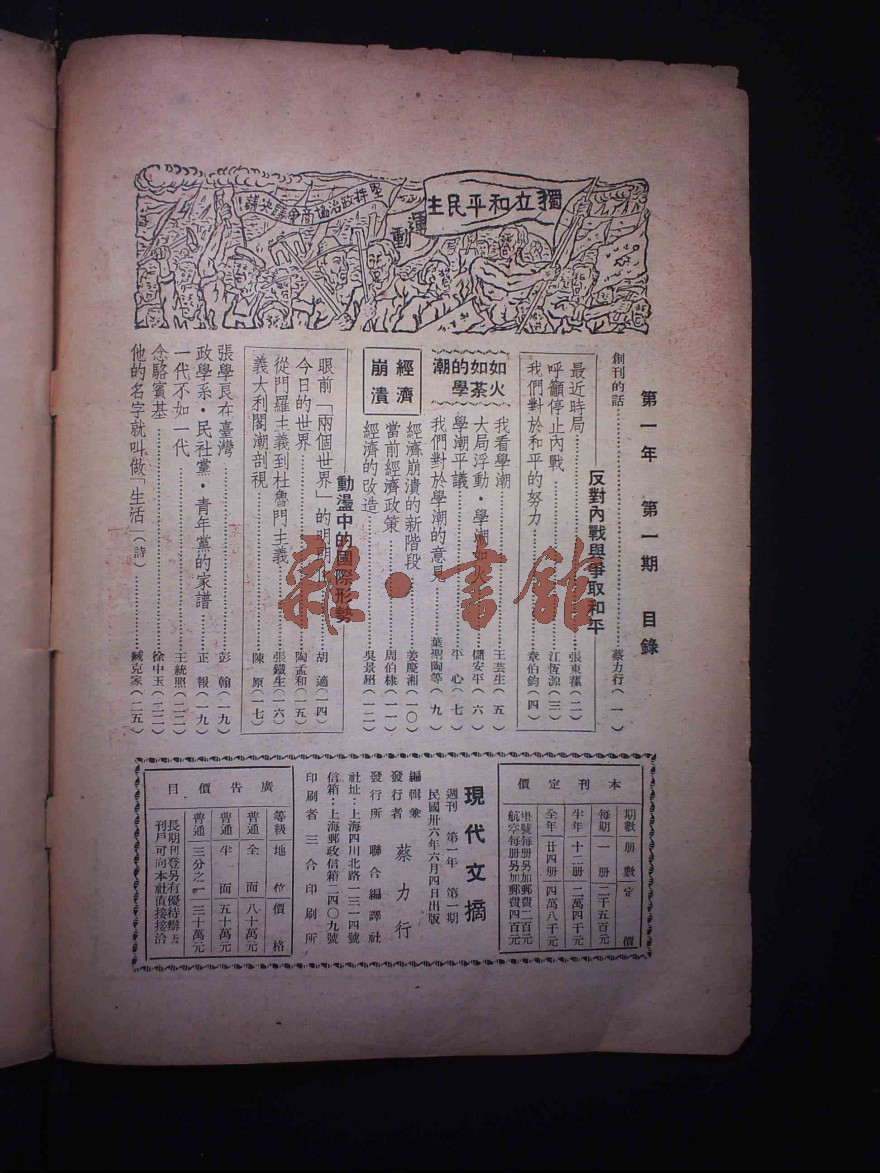 獨立和平民主
運動
堅持政治協商會議決議!
第一年 第一期 目錄
創刊的話…………蔡力行(一)
反對內戰與爭取和平
最近時局…………張東蓀(二)
呼籲停止內戰…………江恆源(三)
我們對於和平的努力…………章伯鈞(四)
如火如荼的學潮
我看學潮…………王芸生(五)
大局浮動・學潮如火…………儲安平(六)
學潮平議…………平心(七)
我們對於學潮的意見…………葉聖陶等(九)
經濟崩潰
經濟崩潰的新階段…………姜慶湘(一〇)
當前經濟政策…………周伯棣(一一)
經濟的改造…………吳景超(一二)
動盪中的國際形勢
眼前「兩個世界」的明朗化…………胡適(一四)
今日的世界…………陶孟和(一五)
從門羅主義到杜魯門主義…………張鐵生(一六)
義大利閣潮剖視…………陳原(一七)
張學良在臺灣…………彭翰(一九)
政學系・民社黨・青年黨的家譜…………正報(一九)
一代不如一代…………王統照(二二)
念駱賓基…………徐中玉(二二)
他的名字就叫做「生活」(詩)…………臧克家(二五)
本刊定價
期數 册數 定價
每期 一册 二千五百元
半年 十二册 二萬四千元
全年 廿四册 四萬八千元
掛號每册另加郵費二百元
航空每册另加郵費四百元
現代文摘
週刊 第一年 第一期
民國卅六年六月四日出版
編輯兼發行者 蔡力行
發行所 聯合編譯社
社址:上海四川北路一三一四號
信箱:上海郵政信箱二四〇九號
印刷者 三合印刷所
廣告價目
等級 地位 價格
普通 全面 八十萬元
普通 半面 五十萬元
普通 三分之一 三十萬元
長期刊登另有優待辦法
刊戶可向本社直接接洽
雜・書館